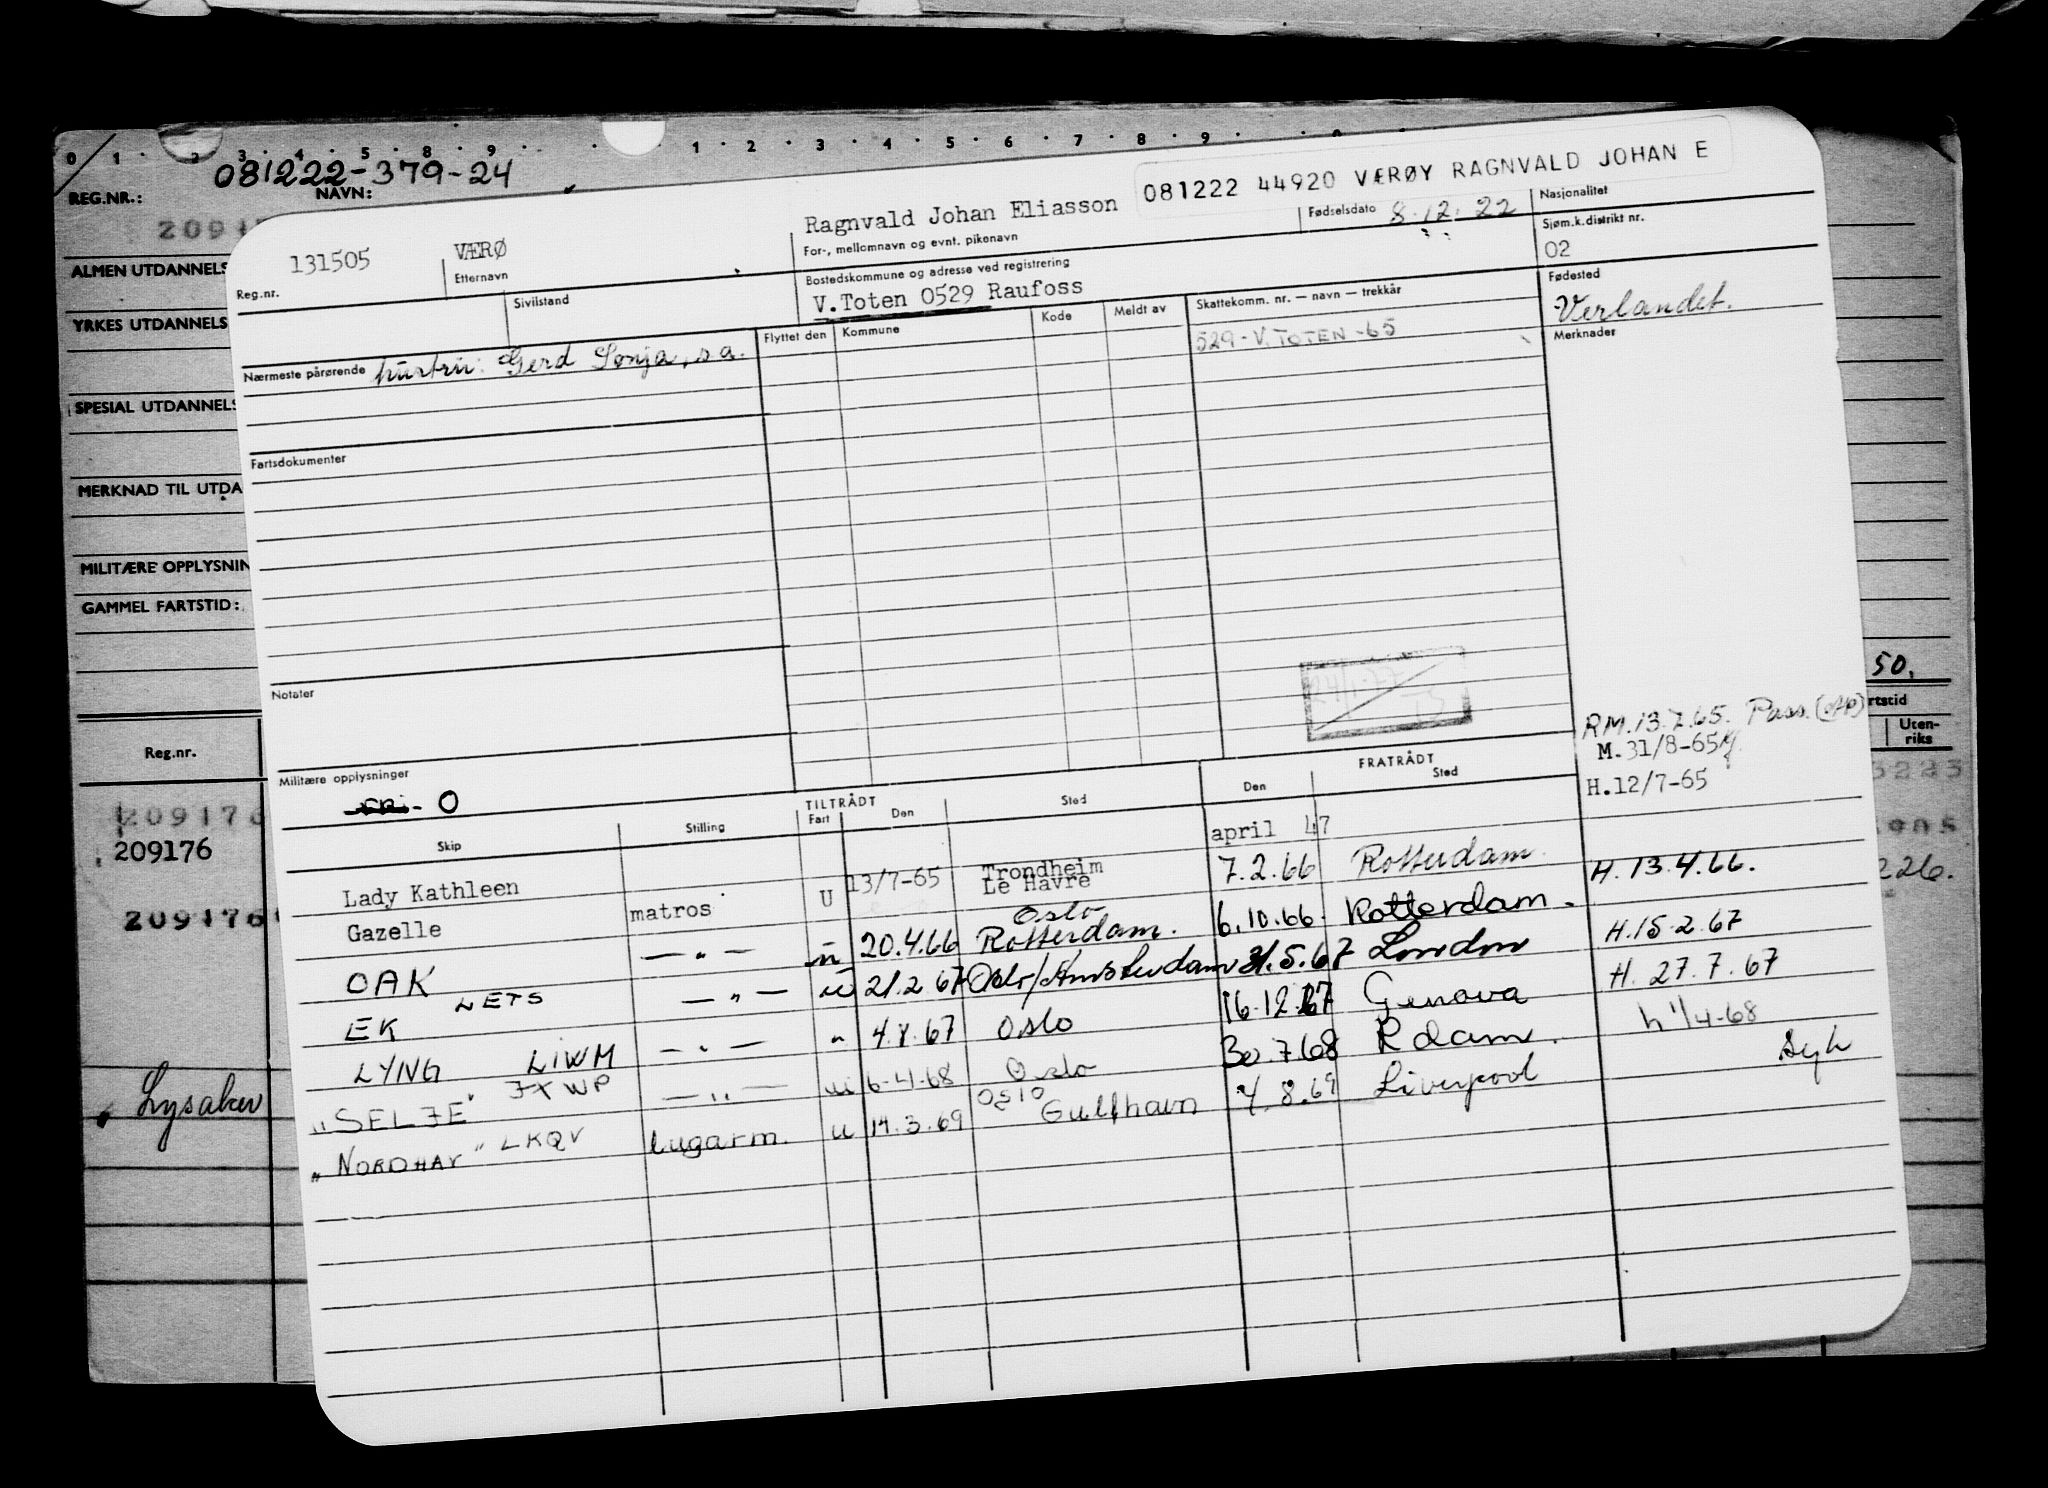 0 1 2 3 4 5 8 9 1 2 3 4 5 6 7 8 9
081222-379-24
REG.NR.: NAVN:
ALMEN UTDANNELS
YRKES UTDANNELS
SPESIAL UTDANNELS
MERKNAD TIL UTDA
MILITÆRE OPPLYSNIN
GAMMEL FARTSTID:
Reg.nr.
209176
209176
209176
Lysaker
50.
rtstid
Uten-
riks
3223
226.
081222 44920 VÆRØY RAGNVALD JOHAN E
131505 VÆRØ Ragnvald Johan Eliasson 8.12.22
Reg.nr. Etternavn For-, mellomnavn og evnt. pikenavn Fødselsdato Nasjonalitet
Sjøm.k.distrikt nr.
02
Sivilstand Bostedskommune og adresse ved registrering
V.Toten 0529 Raufoss
Fødested
Verlandet.
Nærmeste pårørende hustru: Gerd Sonja, s.a.
Flyttet den Kommune Kode Meldt av Skattekomm. nr. — navn — trekkår
529-V.TOTEN-65
Merknader
Fartsdokumenter
Notater
Militære opplysninger
O
RM.13.7.65. Pass.
M.31/8-65
H.12/7-65
TILTRÅDT FRATRÅDT
Skip Stilling Fart Den Sted Den Sted
april 47
Lady Kathleen Trondheim
Gazelle matros U 13/7-65 Le Havre 7.2.66 Rotterdam. H.13.4.66.
OAK — " — u 20.4.66 Oslo Rotterdam. 6.10.66. Rotterdam. H.15.2.67
EK LETS — " — u 21.2.67 Oslo/Amsterdam 31.5.67 London H. 27.7.67
LYNG LIWM — " — " 4.8.67 Oslo 16.12.67 Genova h 1/4-68
"SELJE" JXWP — " — u 6-4-68 Oslo 30.7.68 Rdam.
"NORDHAV" LKQV lugarm. u 14.3.69 Oslo Gulfhavn 4.8.69 Liverpool Syk